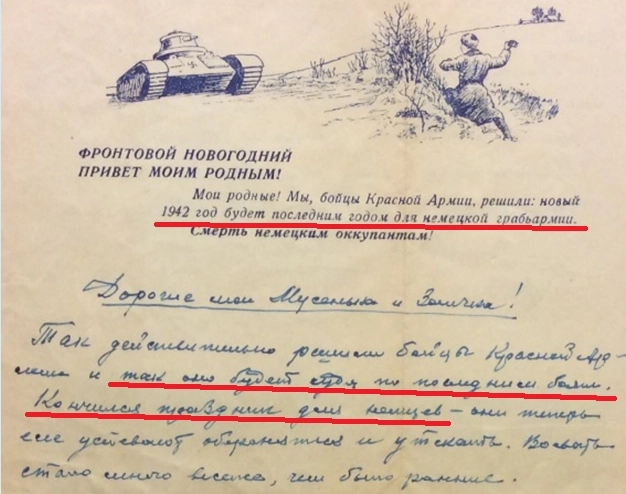 ФРОНТОВОЙ НОВОГОДНИЙ
ПРИВЕТ МОИМ РОДНЫМ!
Мои родные! Мы, бойцы Красной Армии, решили: новый
1942 год будет последним годом для немецкой грабьармии.
Смерть немецким оккупантам!
Дорогие мои Мусенька и !
Так действительно решили бойцы Красной Ар-
мии и так оно будет судя по последним боям.
Кончился праздник для немцев – они теперь
еле успевают обороняться и утекать. Воевать
стало много веселее, чем было раньше.